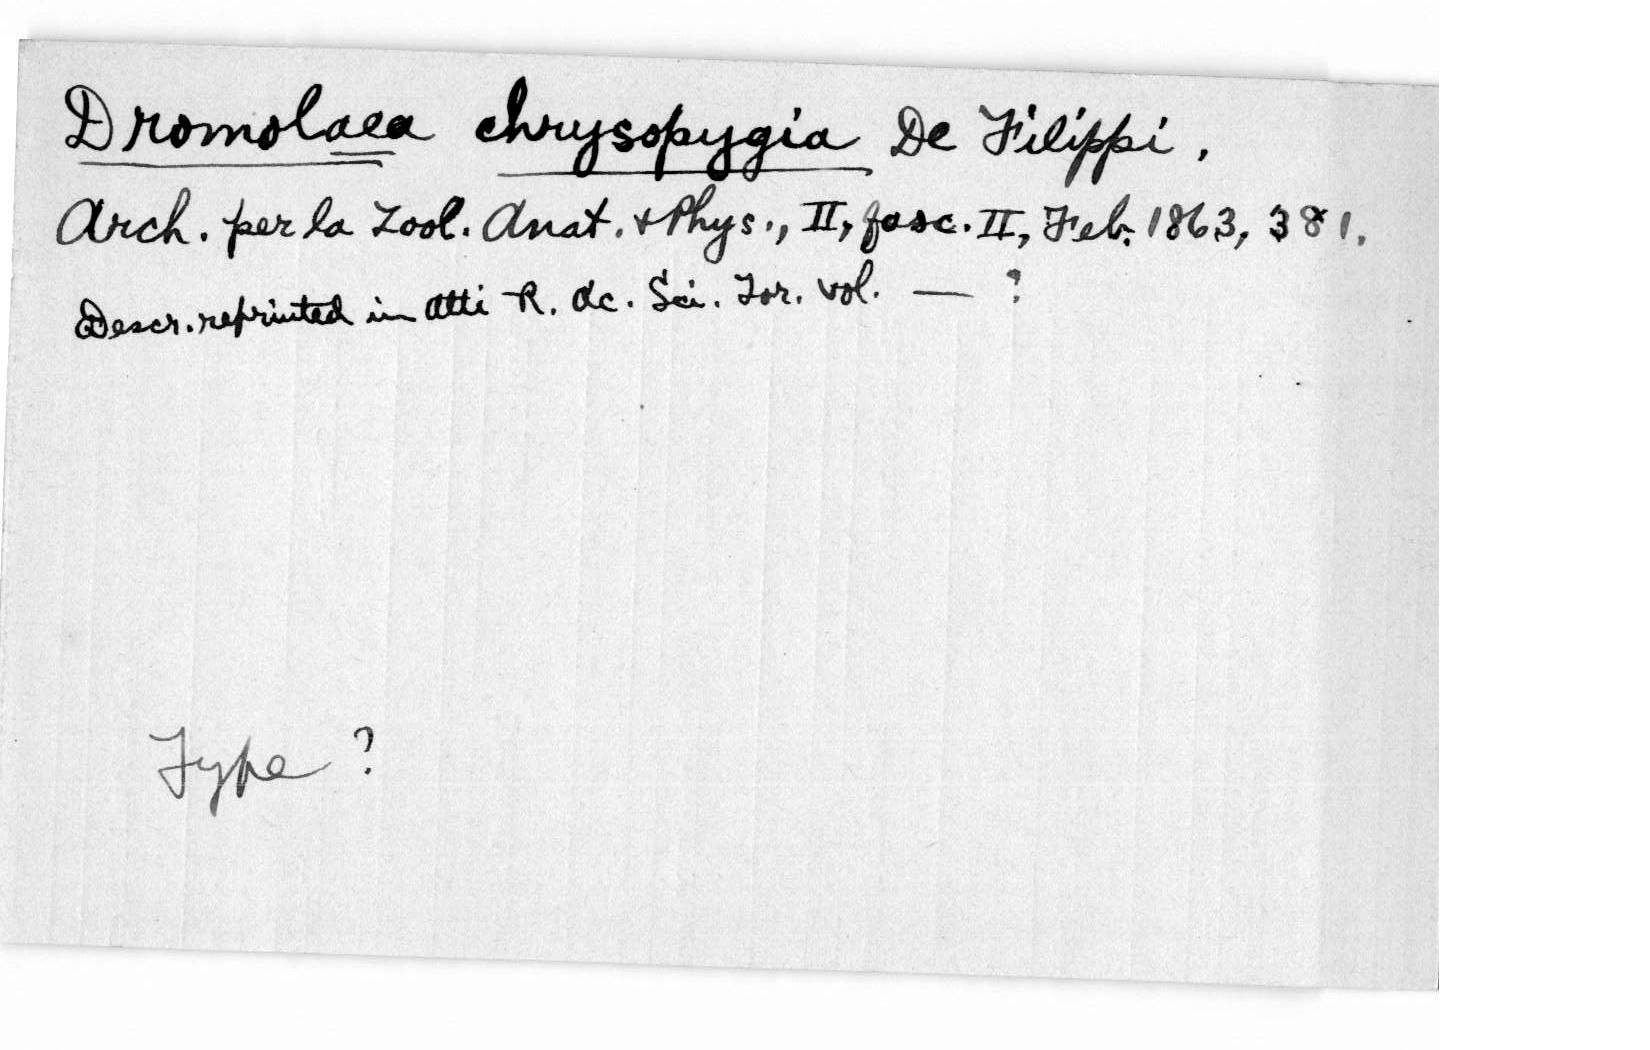 Dromolaea chrysopygia De Filippi,
Arch. per la Zool. Anat. & Phys., II, fasc. II, Feb. 1863, 381.
Descr. reprinted in Atti R. Ac. Sci. Tor. vol. — ?
Type ?